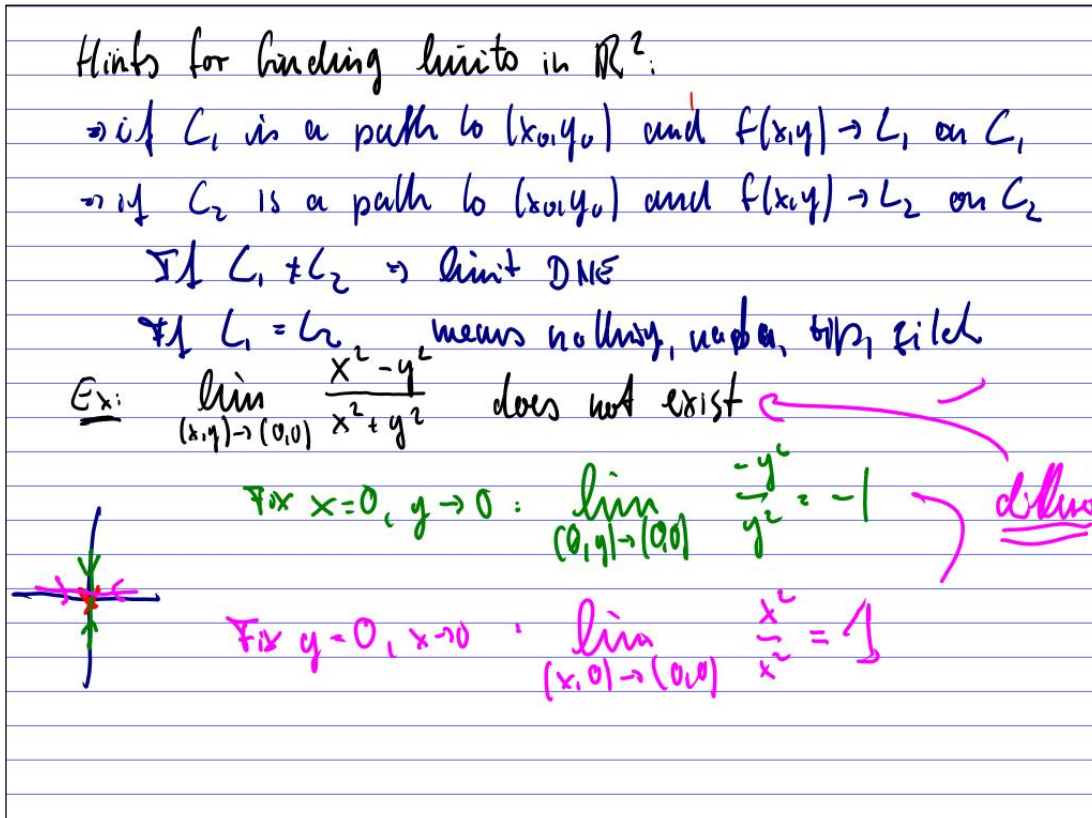 Hints for finding limits in ℝ²:
⇒ if C₁ is a path to (x₀,y₀) and f(x,y) → L₁ on C₁
⇒ if C₂ is a path to (x₀,y₀) and f(x,y) → L₂ on C₂
If L₁ ≠ L₂ ⇒ limit DNE
If L₁ = L₂ means nothing, nada, zilch
Ex: lim (x,y)→(0,0) (x² - y²)/(x² + y²) does not exist
Fix x=0, y→0 : lim (0,y)→(0,0) -y²/y² = -1
Fix y=0, x→0 : lim (x,0)→(0,0) x²/x² = 1